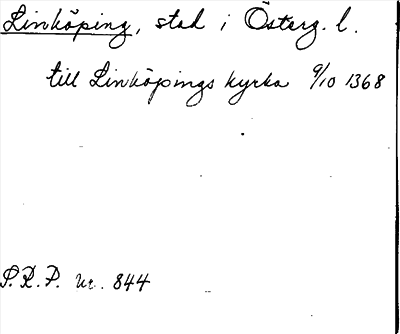 Linköping, stad i Österg. l.
till Linköpings kyrka 9/10 1368
S.R.P. nr. 844